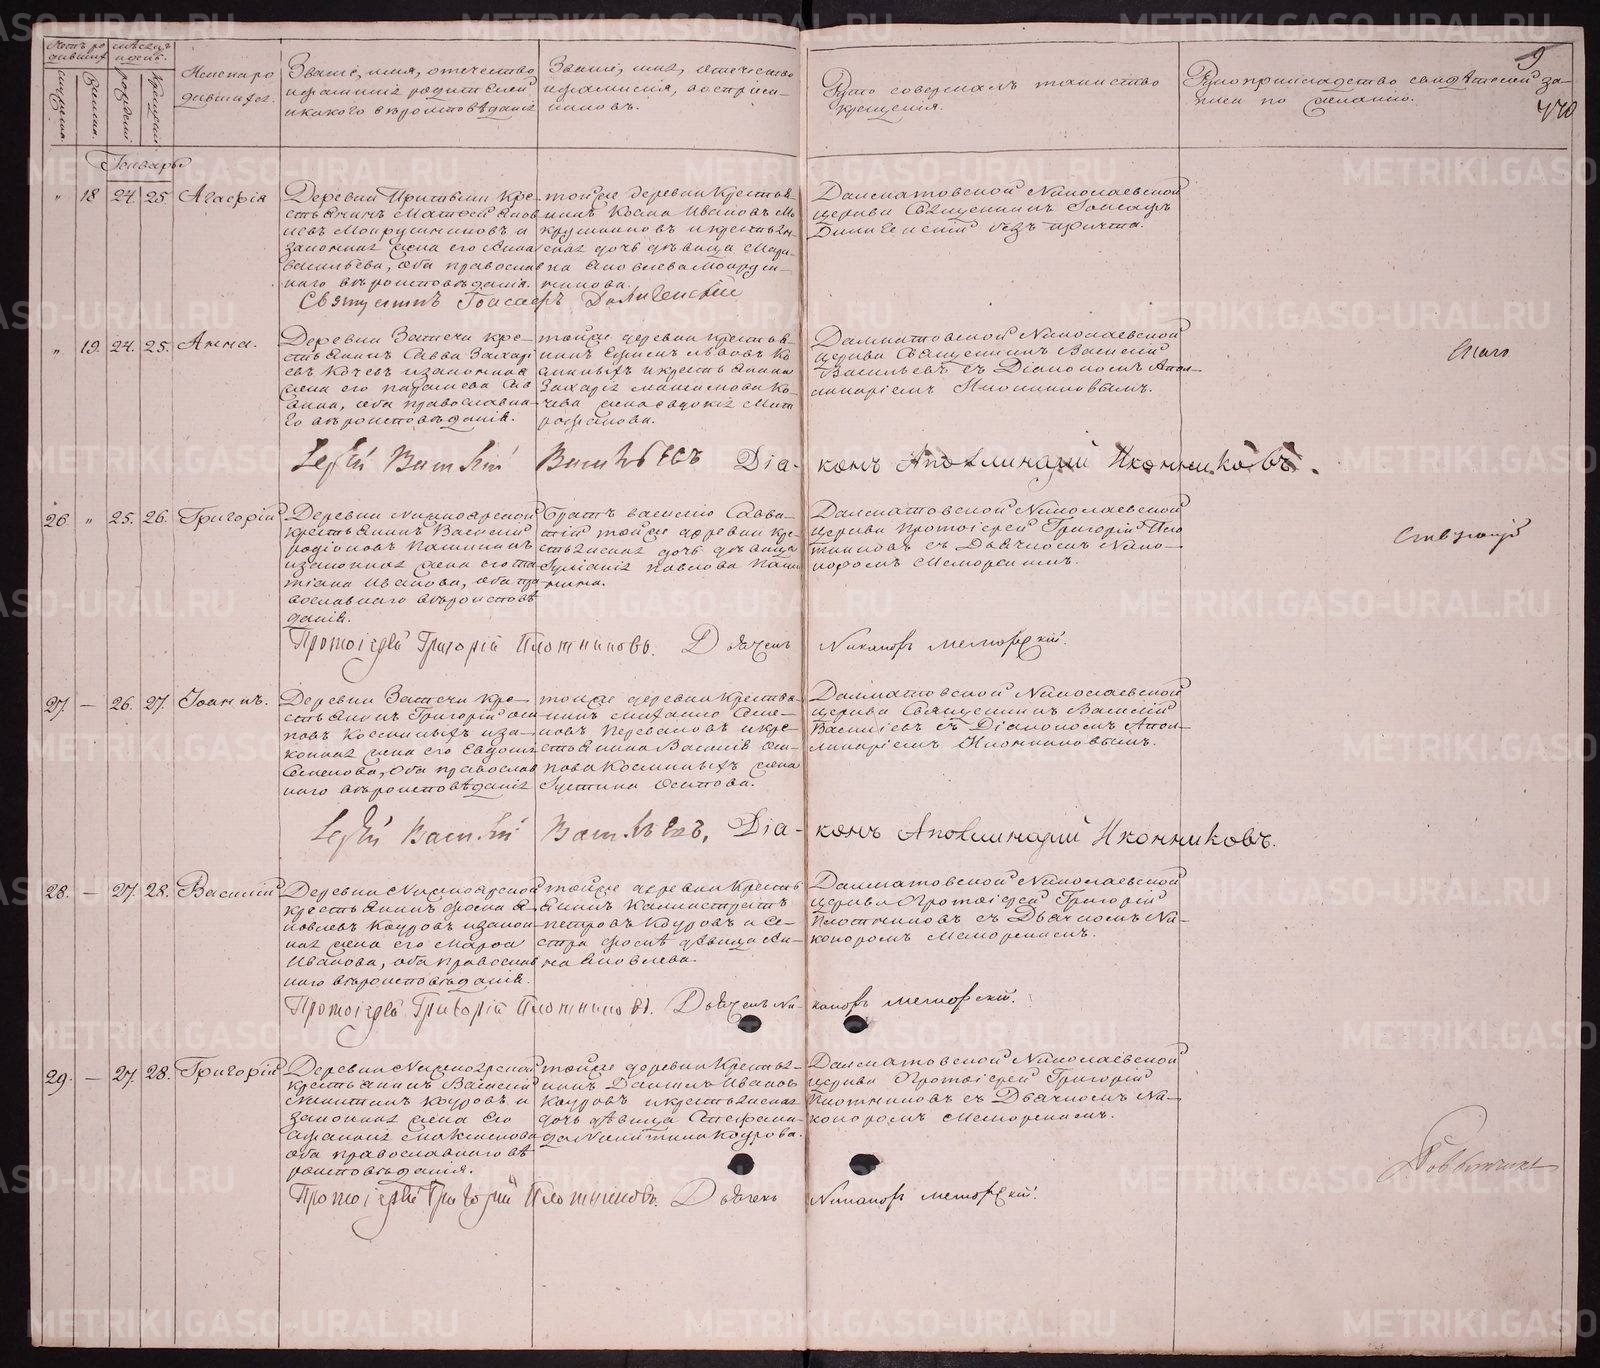 Счетъ ро
дившихся
мѣсяцъ
и день.
Имена ро
дившихся.
Званіе, имя, отечество
и фамилія родителей
и какого вѣроисповѣданія
Званіе, имя, отечество
и фамилія, воспріем-
никовъ.
Кто совершалъ таинство
крещенія.
Рукоприкладство свидѣтелей за-
писи по желанію.
9
440
мужеска.
женска.
рожденія
крещенія.
Генварь
" 18 24. 25. Агафія
Деревни Притыки кре-
стьянинъ Матѳей Яков
левъ Мокрушниковъ и
законная жена его Анна
Васильева, оба православ
наго вѣроисповѣданія.
тойже деревни крестья-
нинъ Косма Ивановъ Мо
крушниковъ и крестьян-
ская дочь дѣвица Мари-
на Яковлева Мокруш-
никова.
Далматовской Николаевской
церкви Священникъ Іоасафъ
безъ причта.
Священникъ Іоасафъ
" 19. 24. 25. Анна.
Деревни Затечи кре-
стьянинъ Савва Захарі
евъ Кочевъ и законная
жена его Параскева Сав
вина, оба православна-
го вѣроисповѣданія.
тойже деревни крестья-
нинъ Ефимъ Львовъ Ко
и крестьянина
Захарія Максимова Ко-
чева жена Евдокія Мит
рофанова.
Далматовской Николаевской
церкви Священникъ Василій
Васильевъ съ Діакономъ Апол-
линаріемъ Иконниковымъ.
Іерей Василій Васильевъ Діа-
конъ Аполлинарій Иконниковъ.
26. " 25. 26. Григорій
Деревни Нижноярской
крестьянинъ Василій
Родіоновъ Пашнинъ
и законная жена его Та
тіана Иванова, оба пра
вославнаго вѣроисповѣ
данія.
Братъ Василію Савва-
тій тойже деревни кре-
стьянская дочь дѣвица
Іуліанія Павлова Паш
нина.
Далматовской Николаевской
церкви Протоіерей Григорій Пло
тниковъ съ Дьячкомъ Ника-
норомъ Меморскимъ.
Протоіерей Григорій Плотниковъ. Дьячекъ
Никаноръ Меморскій.
27. — 26. 27. Іоаннъ.
Деревни Затечи кре-
стьянинъ Григорій Оси
повъ Косминыхъ и за-
конная жена его Евдокія
Семенова, оба православ
наго вѣроисповѣданія
тойже деревни крестья-
нинъ Михаило Семе-
новъ Переваловъ и кре-
стьянина Василія Оси-
пова Косминыхъ жена
Іустина Осипова.
Далматовской Николаевской
церкви Священникъ Василій
Васильевъ съ Діакономъ Апол-
линаріемъ Иконниковымъ.
Іерей Василій Васильевъ, Діа-
конъ Аполлинарій Иконниковъ.
28. — 27. 28. Василій
Деревни Нижноярской
крестьянинъ Фока Я-
ковлевъ Кауровъ и закон-
ная жена его Марѳа
Иванова, оба православ
наго вѣроисповѣданія.
тойже деревни кресть
янинъ Каллистратъ
Петровъ Кауровъ и се-
стра Фокѣ дѣвица Ан-
на Яковлева.
Далматовской Николаевской
церкви Протоіерей Григорій
Плотниковъ съ Дьячкомъ Ни-
каноромъ Меморскимъ.
Протоіерей Григорій Плотниковъ. Дьячекъ Ни-
каноръ Меморскій.
29. — 27. 28. Григорій
Деревни Нижноярской
крестьянинъ Василій
Никитинъ Кауровъ и
законная жена его
Афанасія Максимова
оба православнаго вѣ
роисповѣданія.
тойже деревни крестья-
нинъ Даніилъ Ивановъ
Кауровъ и крестьянская
дочь дѣвица Стефани-
да Никитина Каурова.
Далматовской Николаевской
церкви Протоіерей Григорій
Плотниковъ съ Дьячкомъ Ни-
каноромъ Меморскимъ.
Протоіерей Григорій Плотниковъ. Дьячекъ
Никаноръ Меморскій.
METRIKI.GASO-URAL.RU